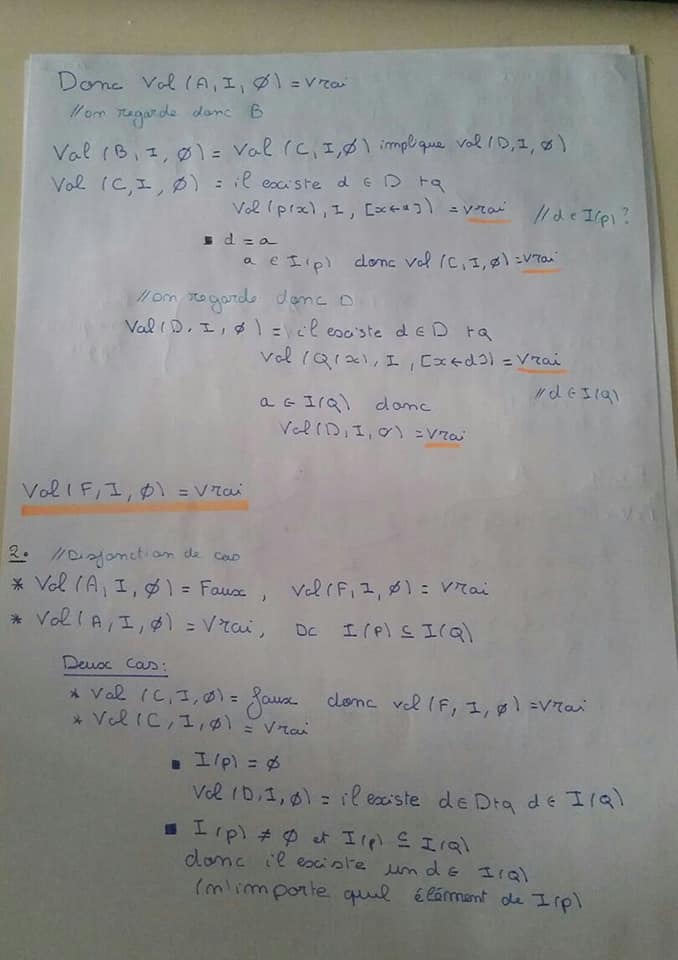 Donc Val(A, I, Ø) = Vrai
//on regarde donc B
Val(B, I, Ø) = Val(C, I, Ø) implique val(D, I, Ø)
Val(C, I, Ø) = il existe d ∈ D tq
Val(p(x), I, [x←d]) = Vrai //d ∈ I(p) ?
▪ d = a
a ∈ I(p) donc val(C, I, Ø) = Vrai
//on regarde donc D
Val(D, I, Ø) = il existe d ∈ D tq
Val(Q(x), I, [x←d]) = Vrai
//d ∈ I(Q)
a ∈ I(Q) donc
Val(D, I, Ø) = Vrai
Val(F, I, Ø) = Vrai
2. //Disjonction de cas
* Val(A, I, Ø) = Faux, Val(F, I, Ø) = Vrai
* Val(A, I, Ø) = Vrai, Dc I(p) ⊆ I(Q)
Deux cas:
* Val(C, I, Ø) = faux donc val(F, I, Ø) = Vrai
* Val(C, I, Ø) = Vrai
▪ I(p) = Ø
Val(D, I, Ø) = il existe d ∈ D tq d ∈ I(Q)
▪ I(p) ≠ Ø et I(p) ⊆ I(Q)
donc il existe un d ∈ I(Q)
(n'importe quel élément de I(p)